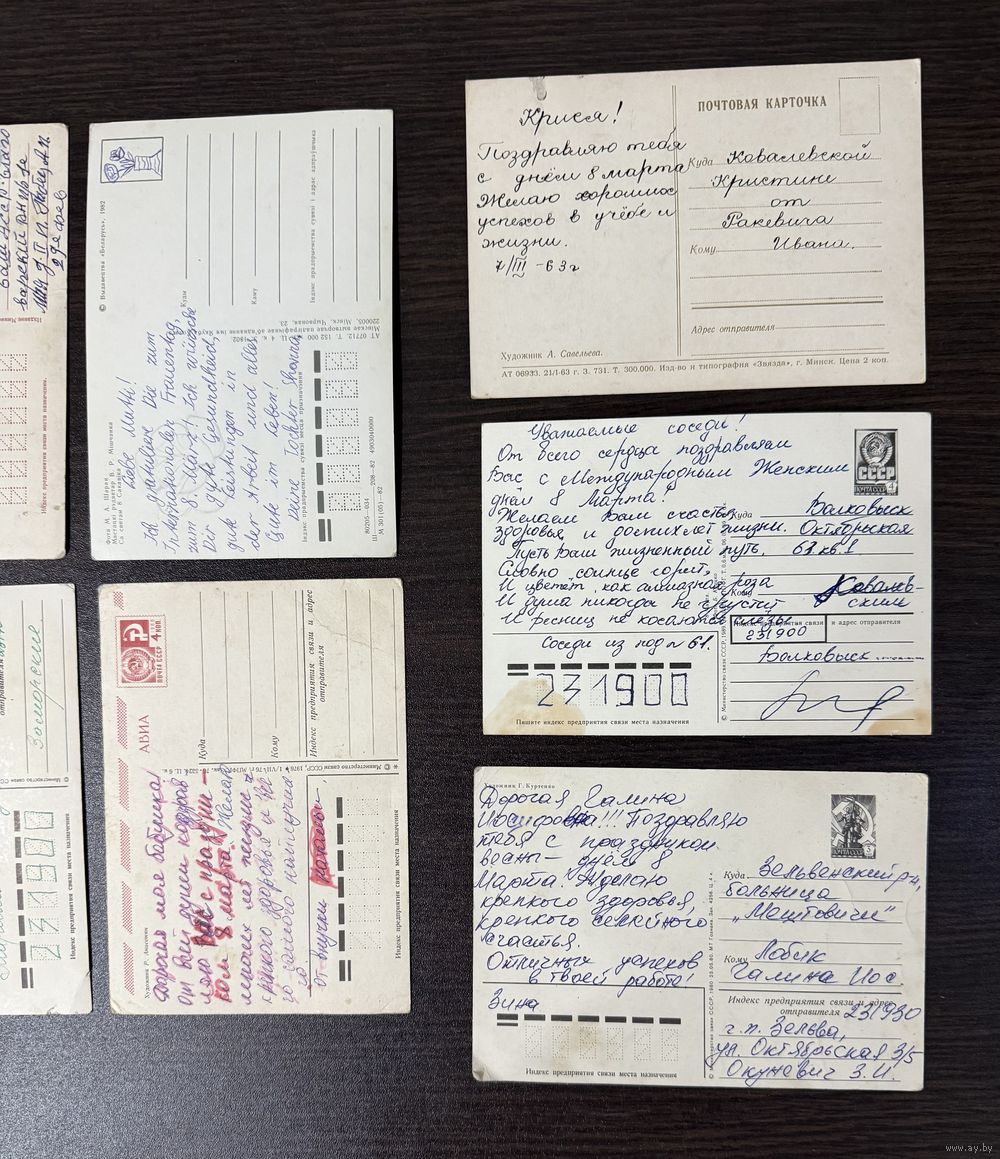 Крися!
Поздравляю тебя
с днём 8 марта
Желаю хороших
успехов в учёбе и
жизни.
7/III -63г
Художник А. Савельева.
ПОЧТОВАЯ КАРТОЧКА
Куда Ковалевской
Кристине
от
Ракевича
Кому Ивана.
Адрес отправителя
АТ 06933. 21/I-63 г. З. 731. Т. 300.000. Изд-во и типография «Звязда», г. Минск. Цена 2 коп.
Уважаемые соседи!
От всего сердца поздравляем
Вас с Международным Женским
днём 8 Марта!
Желаем Вам счастья
здоровья и долгих лет жизни.
Пусть Ваш жизненный путь,
Словно солнце горит,
И цветёт, как алмазная роза
И душа никогда не грустит
И ресниц не касаются слёзы
Соседи из под. № 61.
231900
Пишите индекс предприятия связи места назначения
СССР
Куда Волковыск
Октябрьская
61 кв. 1
Кому Ковалев-
ским
Индекс предприятия связи и адрес отправителя
231900
Волковыск
Художник Г. Куртенко
Дорогая Галина
Иосифовна!!! Поздравляю
тебя с праздником
весны – днём 8
Марта! Желаю
крепкого здоровья,
крепкого семейного
счастья.
Отличных успехов
в твоей работе!
Зина
Индекс предприятия связи места назначения
Куда Зельвенский р-н,
больница
„Моштовичи"
Кому Лобик
Галина Иос.
Индекс предприятия связи и адрес
отправителя 231930
г.п. Зельва,
ул. Октябрьская 3/5
Окуневич З.И.
© Выдавецтва «Беларусь», 1982
Куды
Каму
Індэкс прадпрыемства сувязі і адрас адпраўшчыка
Фота М. А. Шарая
Мастацкі рэдактар В. Р. Мішчанка
Liebe Mutti!
Ich gratuliere Dir zum
Internationalen Frauentag,
zum 8 März! Ich wünsche
Dir gute Gesundheit,
gute Leistungen in
der Arbeit und alles
Gute im Leben!
Deine Tochter Shanna
Індэкс прадпрыемства сувязі месца прызначэння
80205—034
М 301(05)—82
208—82 4903040000
АТ 07712. Т. 152 000
220005, Мінск, Чырвоная, 23.
ПОЧТА СССР
4 КОП.
АВИА
Куда
Кому
Индекс предприятия связи и адрес
отправителя
© Министерство связи СССР, 1976
Художник К. Анисимов
Дорогая моя бабушка!
От всей души поздрав
ляю Вас с праздни-
ком 8 марта. Желаю
крепкого здоровья и все
го самого наилучше
го
от внучки Наташи.
Индекс предприятия связи места назначения
Индекс предприятия связи места назначения
Заморские
© Министерство связи
231900
Индекс предприятия связи места назначения
www.ay.by